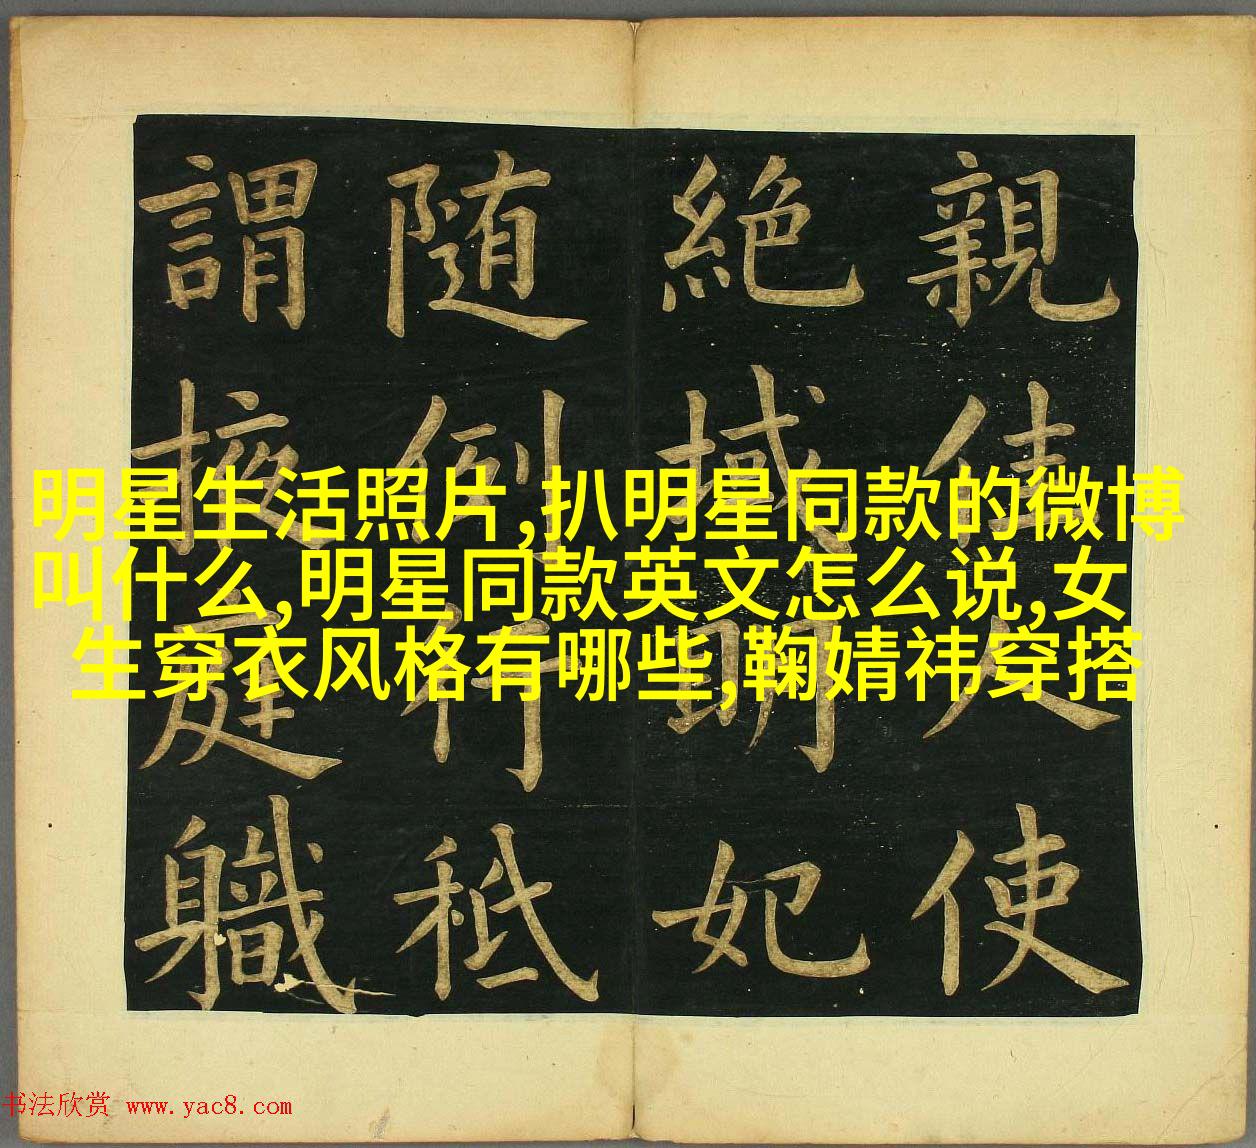 親佳人使
絶域明妃
随例行秪
謂掖庭軄
明星生活照片,扒明星同款的微博
叫什么,明星同款英文怎么说,女
生穿衣风格有哪些,鞠婧祎穿搭
书法欣赏 www.yac8.com